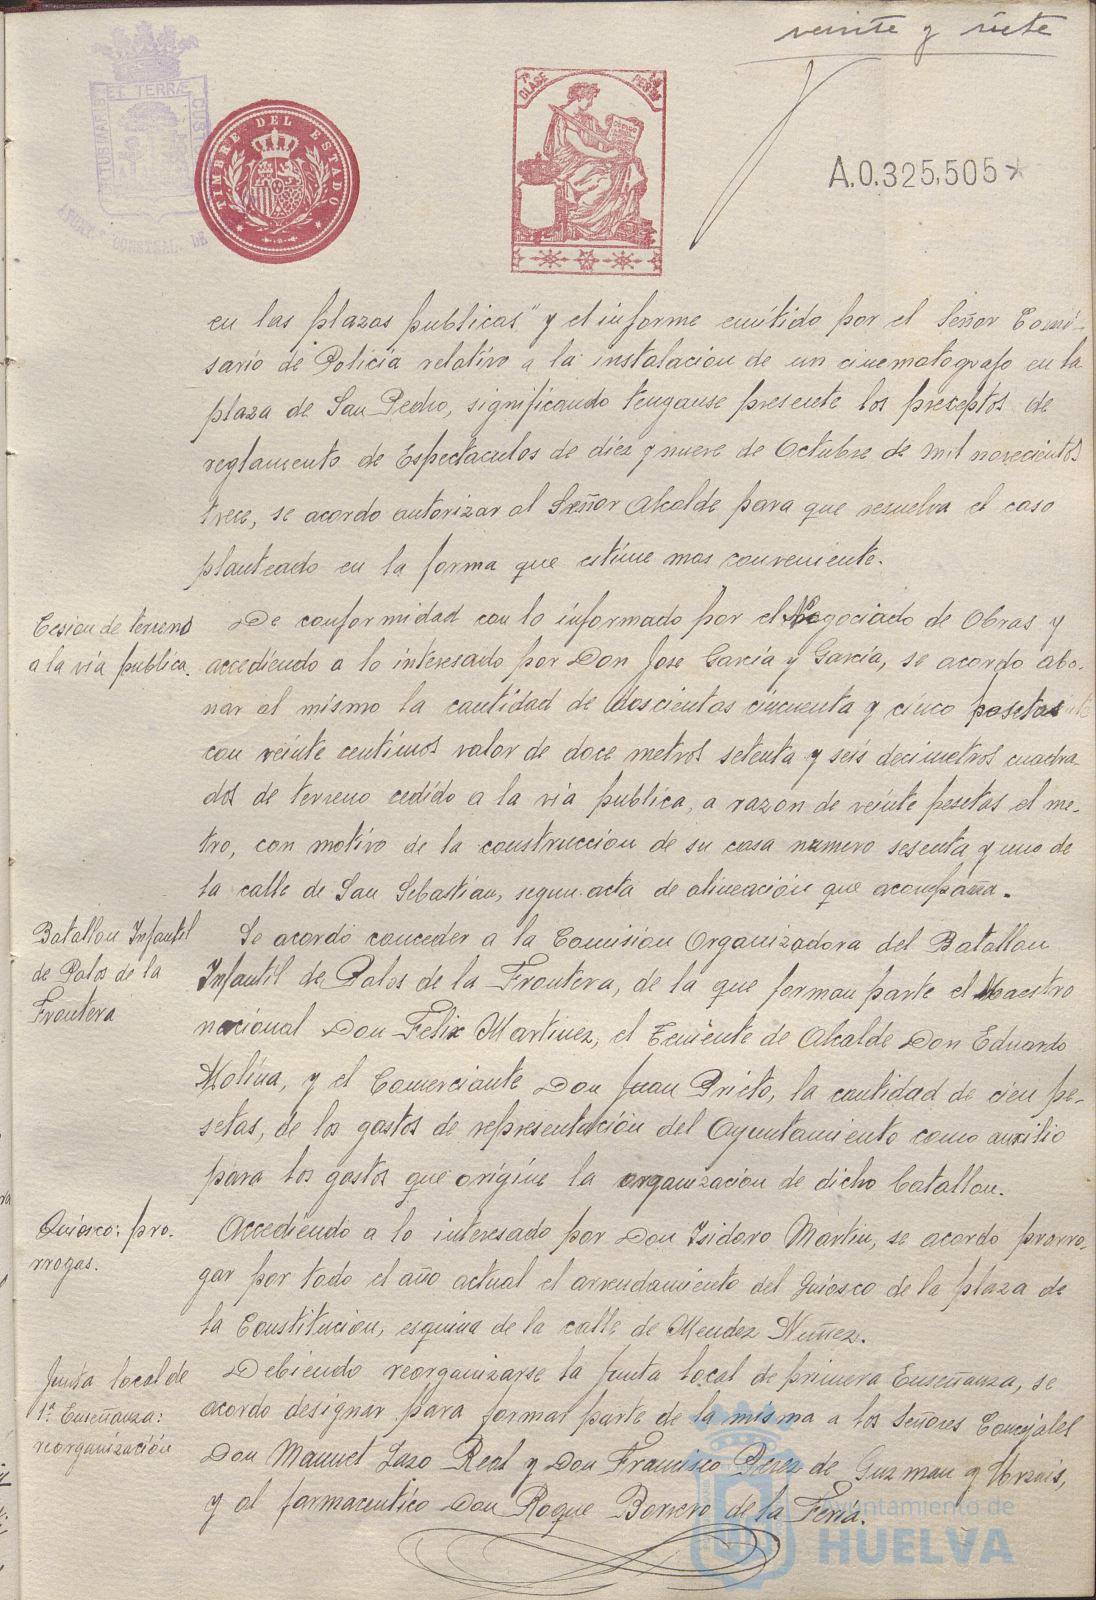 veinte y siete
ET TERRÆ
TIMBRE DEL ESTADO
CLASE
A.0.325,505*
en las plazas publicas" y el informe emitido por el Señor Comi-
sario de Policia relativo a la instalacion de un cinematografo en la
plaza de San Pedro, significando tengause presente los preceptos de
reglamento de Espectaculos de diez y nueve de Octubre de mil novecientos
trece, se acordo autorizar al Señor Alcalde para que resuelva el caso
planteado en la forma que estime mas conveniente.
Cesion de terreno
a la via publica.
De conformidad con lo informado por el Negociado de Obras y
accediendo a lo interesado por Don Jose Garcia y Garcia, se acordo abo-
nar al mismo la cantidad de doscientas cincuenta y cinco pesetas
con veinte centimos valor de doce metros setenta y seis decimetros cuadra-
dos de terreno cedido a la via publica, a razon de veinte pesetas el me-
tro, con motivo de la construccion de su casa numero sesenta y uno de
la calle de San Sebastian, segun acta de alineación que acompaña.
Batallon Infantil
de Palos de la
Frontera
Se acordó conceder a la Comision Organizadora del Batallon
Infantil de Palos de la Frontera, de la que forman parte el Maestro
nacional Don Felix Martinez, el Teniente de Alcalde Don Eduardo
Molina, y el Comerciante Don Juan Prieto, la cantidad de cien pe-
setas, de los gastos de representación del Ayuntamiento como auxilio
para los gastos que origine la organización de dicho batallon.
Quiosco: pro-
rrogas.
Accediendo a lo interesado por Don Isidoro Martin, se acordo prorro-
gar por todo el año actual el arrendamiento del quiosco de la plaza de
la Constitucion, esquina de la calle de Mendez Nuñez.
Junta local de
1ª Enseñanza:
reorganización
Debiendo reorganizarse la Junta local de primera Enseñanza, se
acordo designar para formar parte de la misma a los Señores Concejales
Don Manuel Lazo Real y Don Francisco Perez de Guzman y Urzais,
y al farmaceutico Don Roque Borrero de la Feria.
Ayuntamiento de
HUELVA